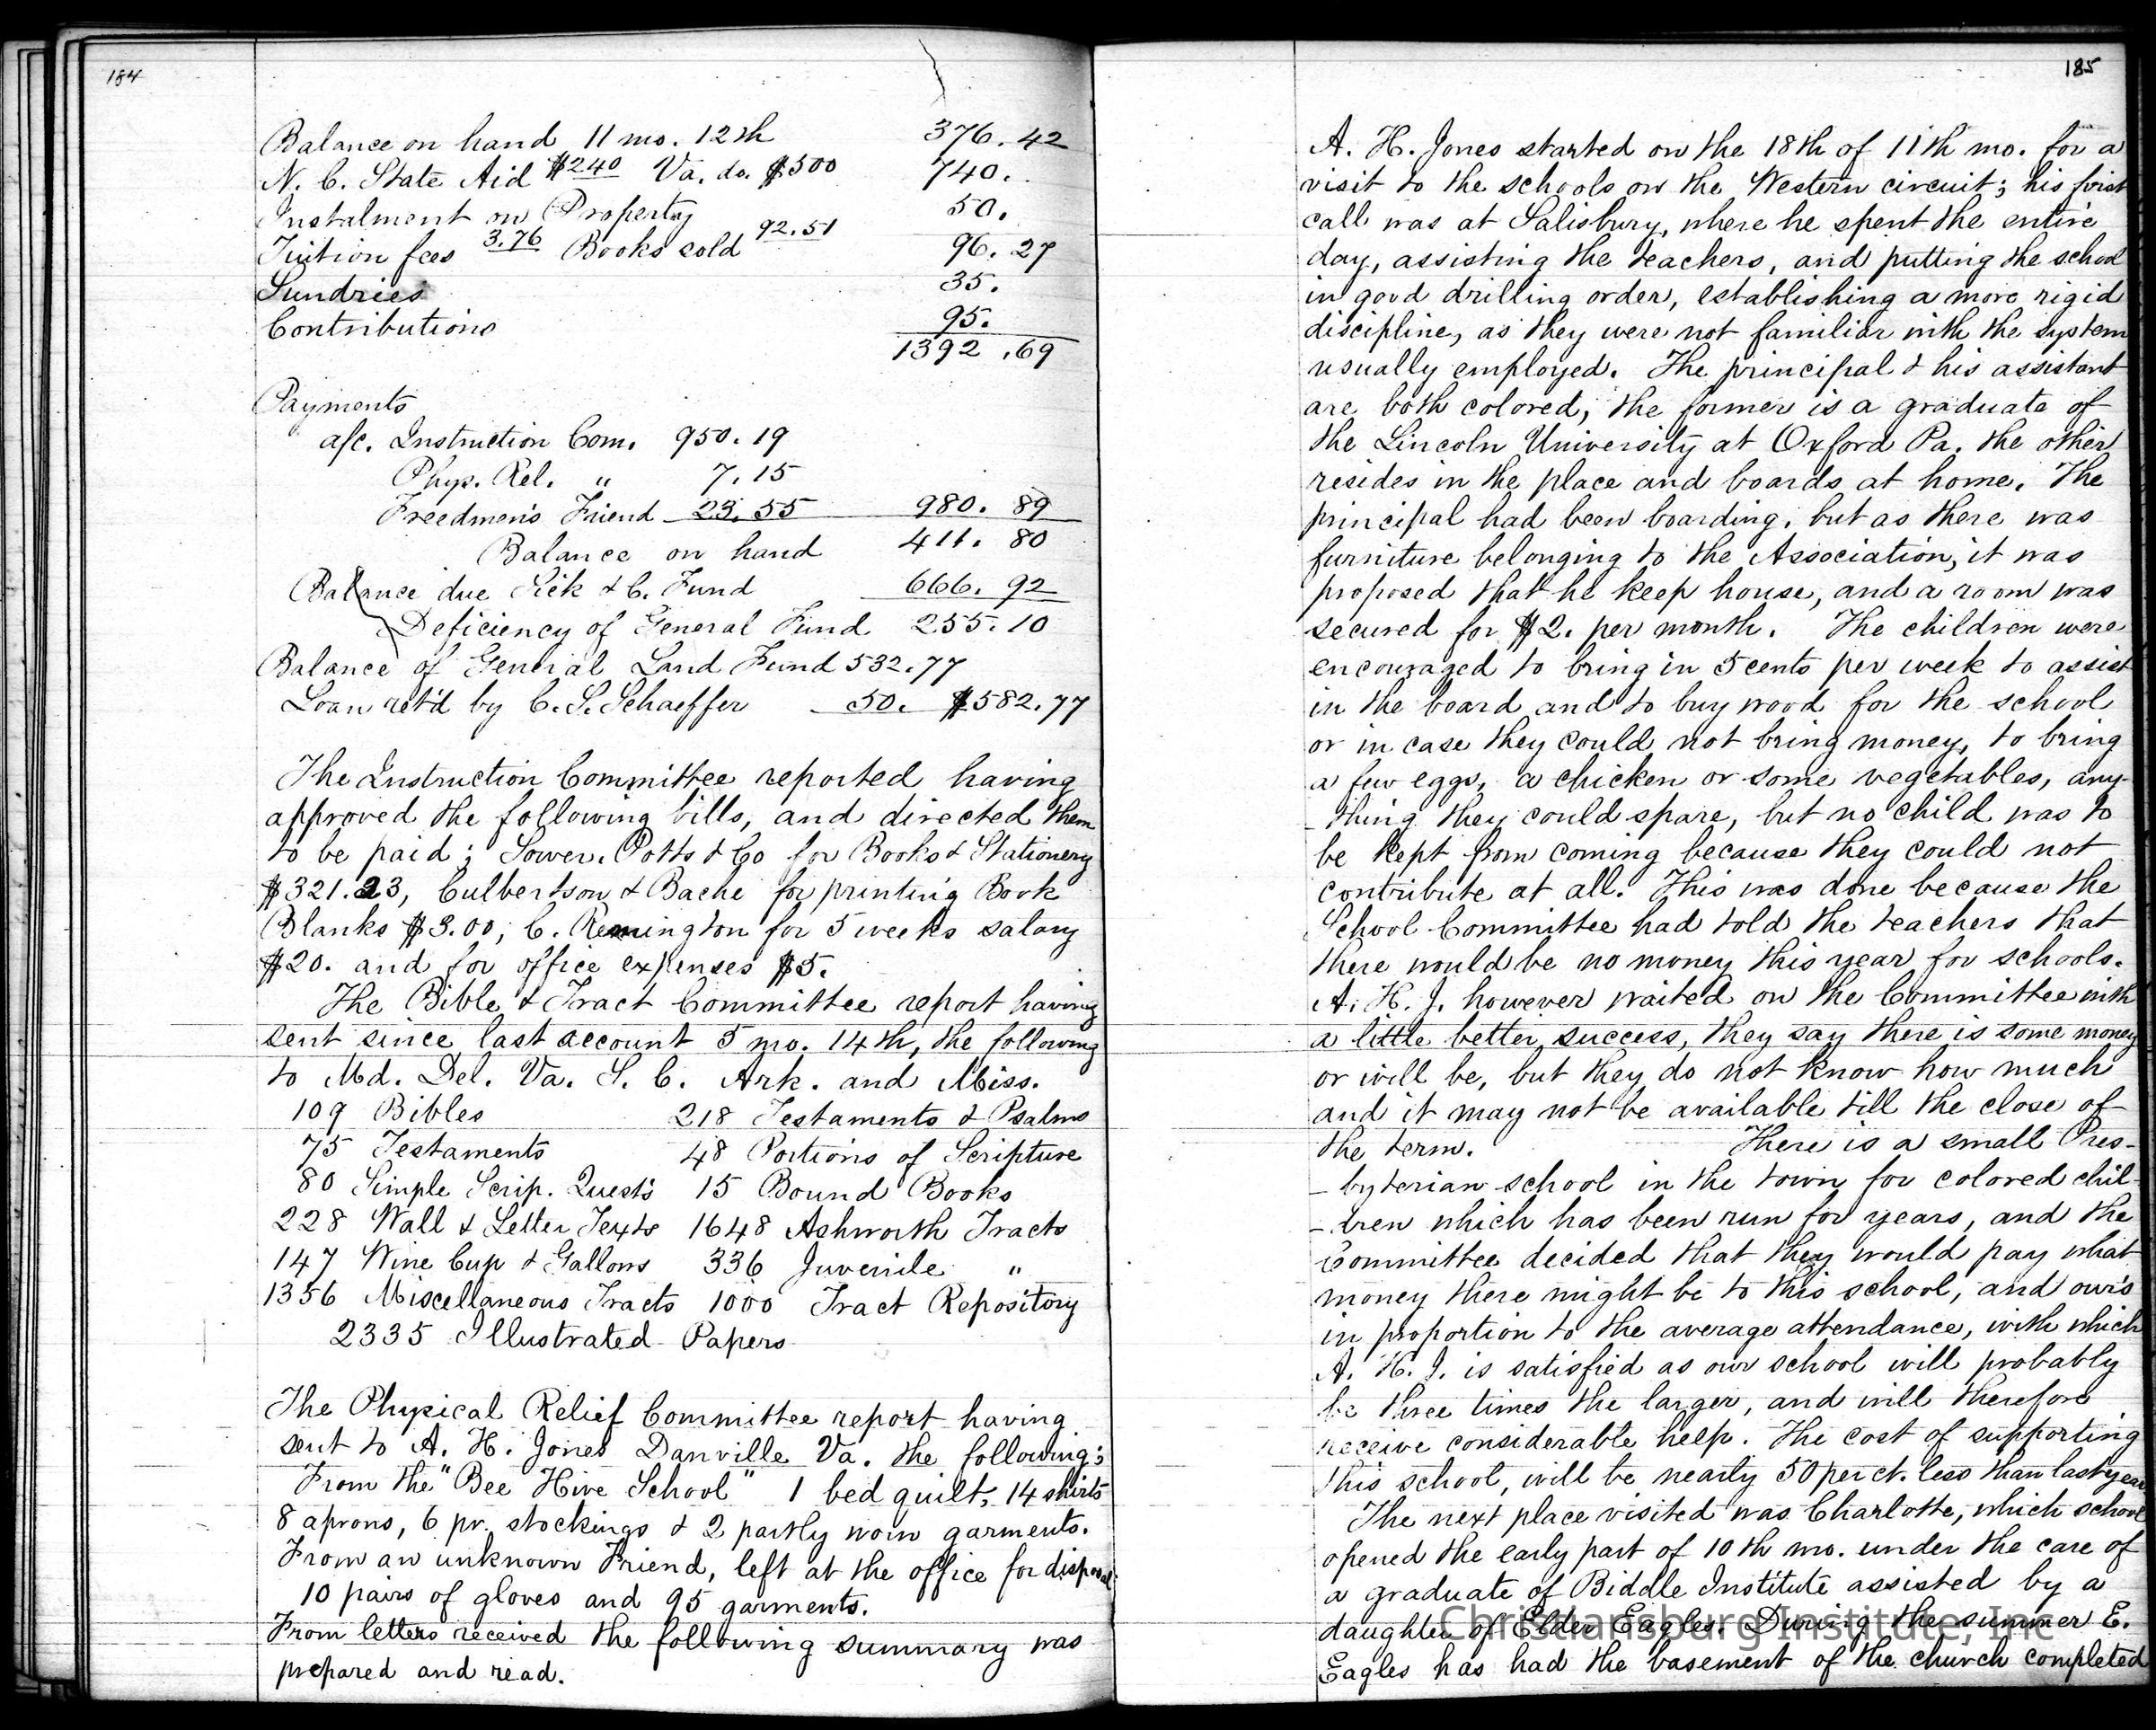 184
Balance on hand 11 mo. 12th 376.42
N. C. State Aid $240 Va. do. $500 740.
Instalment on Property 50.
Tuition fees 3.76 Books sold 92.51 96.27
Sundries 35.
Contributions 95.
1392.69
Payments
a/c. Instruction Com. 950.19
Phys. Rel. " 7.15
Freedmen's Friend 23.55 980.89
Balance on hand 411.80
Balance due Sick & C. Fund 666.92
Deficiency of General Fund 255.10
Balance of General Land Fund 532.77
Loan ret'd by C. S. Schaeffer 50. $582.77
The Instruction Committee reported having
approved the following bills, and directed them
to be paid; Sower, Potts & Co for Books & Stationery
$321.23, Culbertson & Bache for printing Book
Blanks $3.00, C. Remington for 5 weeks salary
$20. and for office expenses $5.
The Bible & Tract Committee report having
sent since last account 5 mo. 14th, the following
to Md. Del. Va. S. C. Ark. and Miss.
109 Bibles 218 Testaments & Psalms
75 Testaments 48 Portions of Scripture
80 Simple Scrip. Quest's 15 Bound Books
228 Wall & Letter Texts 1648 Ashworth Tracts
147 Wine Cup & Gallows 336 Juvenile "
1356 Miscellaneous Tracts 1000 Tract Repository
2335 Illustrated Papers
The Physical Relief Committee report having
sent to A. H. Jones Danville Va. the following;
From the "Bee Hive School" 1 bed quilt, 14 shirts
8 aprons, 6 pr. stockings & 2 partly worn garments.
From an unknown Friend, left at the office for disposal
10 pairs of gloves and 95 garments.
From letters received the following summary was
prepared and read.
185
A. H. Jones started on the 18th of 11th mo. for a
visit to the schools on the Western circuit; his first
call was at Salisbury, where he spent the entire
day, assisting the teachers, and putting the school
in good drilling order, establishing a more rigid
discipline, as they were not familiar with the system
usually employed. The principal & his assistant
are both colored; the former is a graduate of
the Lincoln University at Oxford Pa. the other
resides in the place and boards at home. The
principal had been boarding, but as there was
furniture belonging to the Association, it was
proposed that he keep house, and a room was
secured for $2. per month. The children were
encouraged to bring in 5 cents per week to assist
in the board and to buy wood for the school
or in case they could not bring money, to bring
a few eggs, a chicken or some vegetables, any-
-thing they could spare, but no child was to
be kept from coming because they could not
contribute at all. This was done because the
School Committee had told the teachers that
there would be no money this year for schools.
A. H. J. however waited on the Committee with
a little better success, they say there is some money
or will be, but they do not know how much
and it may not be available till the close of
the term. There is a small Pres-
-byterian school in the town for colored chil-
-dren which has been run for years, and the
Committee decided that they would pay what
money there might be to this school, and our's
in proportion to the average attendance, with which
A. H. J. is satisfied as our school will probably
be three times the larger, and will therefore
receive considerable help. The cost of supporting
this school, will be nearly 50 per ct. less than last year
The next place visited was Charlotte, which school
opened the early part of 10th mo. under the care of
a graduate of Biddle Institute assisted by a
daughter of Elder Eagles. During the summer E.
Eagles has had the basement of the church completed
Christiansburg Institute, Inc